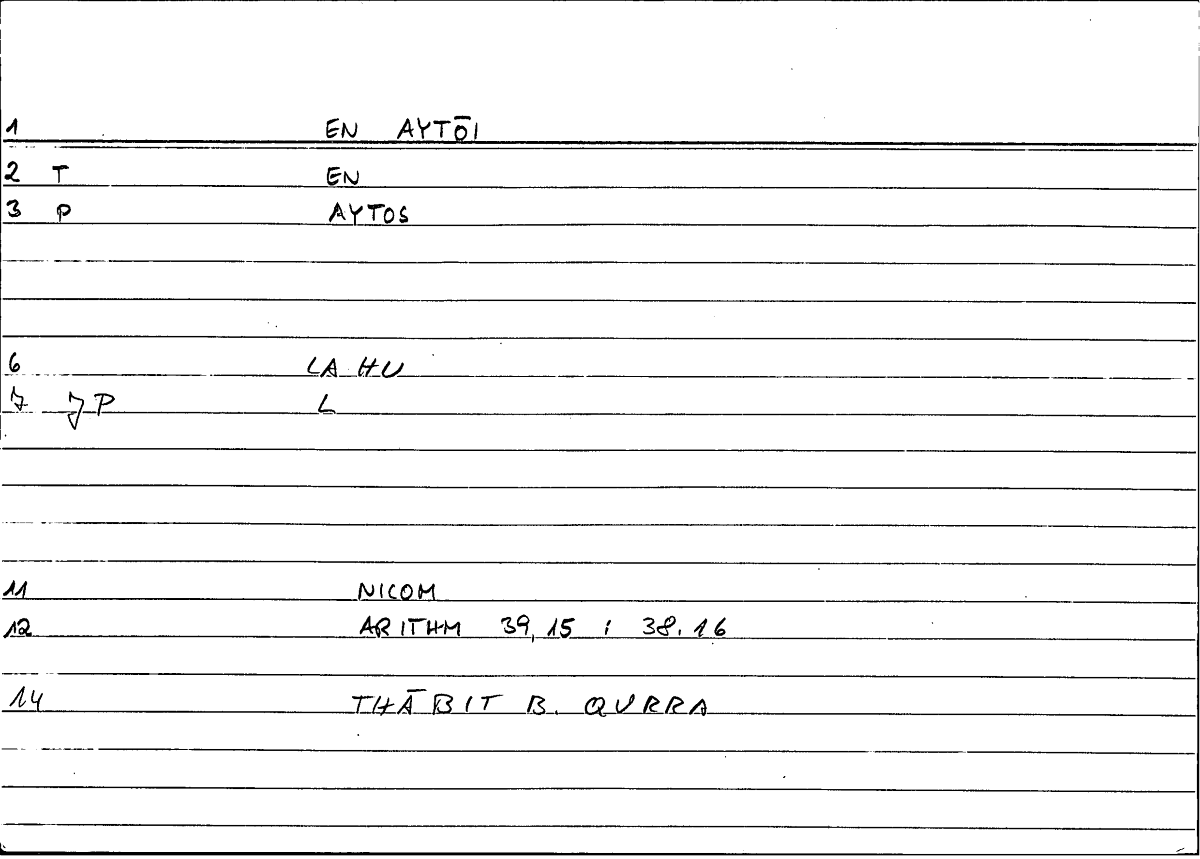 1 EN AYTŌI
2 T EN
3 P AYTOS
6 LA HU
7 JP L
11 NICOM
12 ARITHM 39,15 ; 38.16
14 THĀBIT B. QURRA